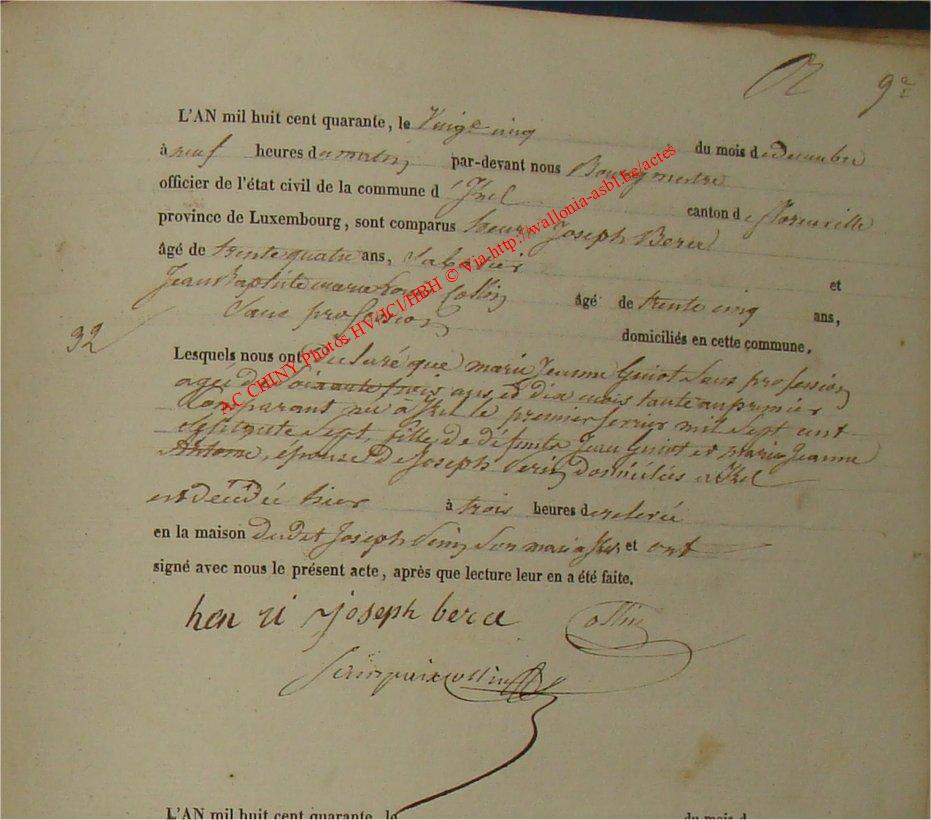 9e
L'AN mil huit cent quarante, le Vingt cinq du mois de decembre
à neuf heures du matin par-devant nous Bourgmestre
officier de l'état civil de la commune d'Izel canton de florenville
province de Luxembourg, sont comparus henri Joseph Berce
âgé de trente quatre ans, Sabotier et
Jean Baptiste marie Collin âgé de trente cinq ans,
Sans profession domiciliés en cette commune,
32
Lesquels nous ont Declaré que marie Jeanne Guiot Sans profession
agée de Soixante trois ans et dix mois tante au premier
Comparant née à Izel le premier fevrier mil Sept cent
Sept, fille de défunts Jean Guiot et marie Jeanne
Antoine, épouse de Joseph domiciliés a Izel
est decedée hier à trois heures de relevée
en la maison dudit Joseph Son mari a Izel et ont
signé avec nous le présent acte, après que lecture leur en a été faite.
hen ri joseph berce Collin
L'AN mil huit cent quarante, le du mois d
AC CHINY Photos HV/JCI/HBH © Via http://wallonia-asbl.be/actes